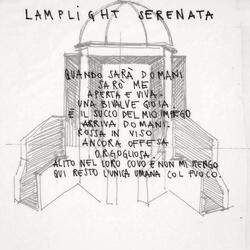 LAMPLIGHT SERENATA
QUANDO SARÀ DOMANI
SARÒ ME
APERTA E VIVA.
UNA BIVALVE GIOIA.
E IL SUCCO DEL MIO IMPEGO
ARRIVA DOMANI.
ROSSA IN VISO
ANCORA OFFESA
ORGOGLIOSA.
ALITO NEL LORO COVO E NON MI PERGO
QUI RESTO L'UNICA UMANA COL FUOCO.